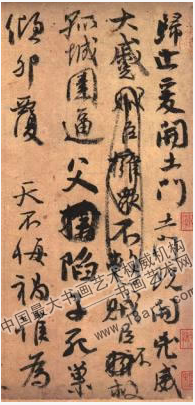 歸止爰開土門土門既開凶威
大蹙賊臣擁衆不救賊臣不救
孤城圍逼父陷子死巢
傾卵覆 天不悔禍誰為
中国最大书画艺术权威机构